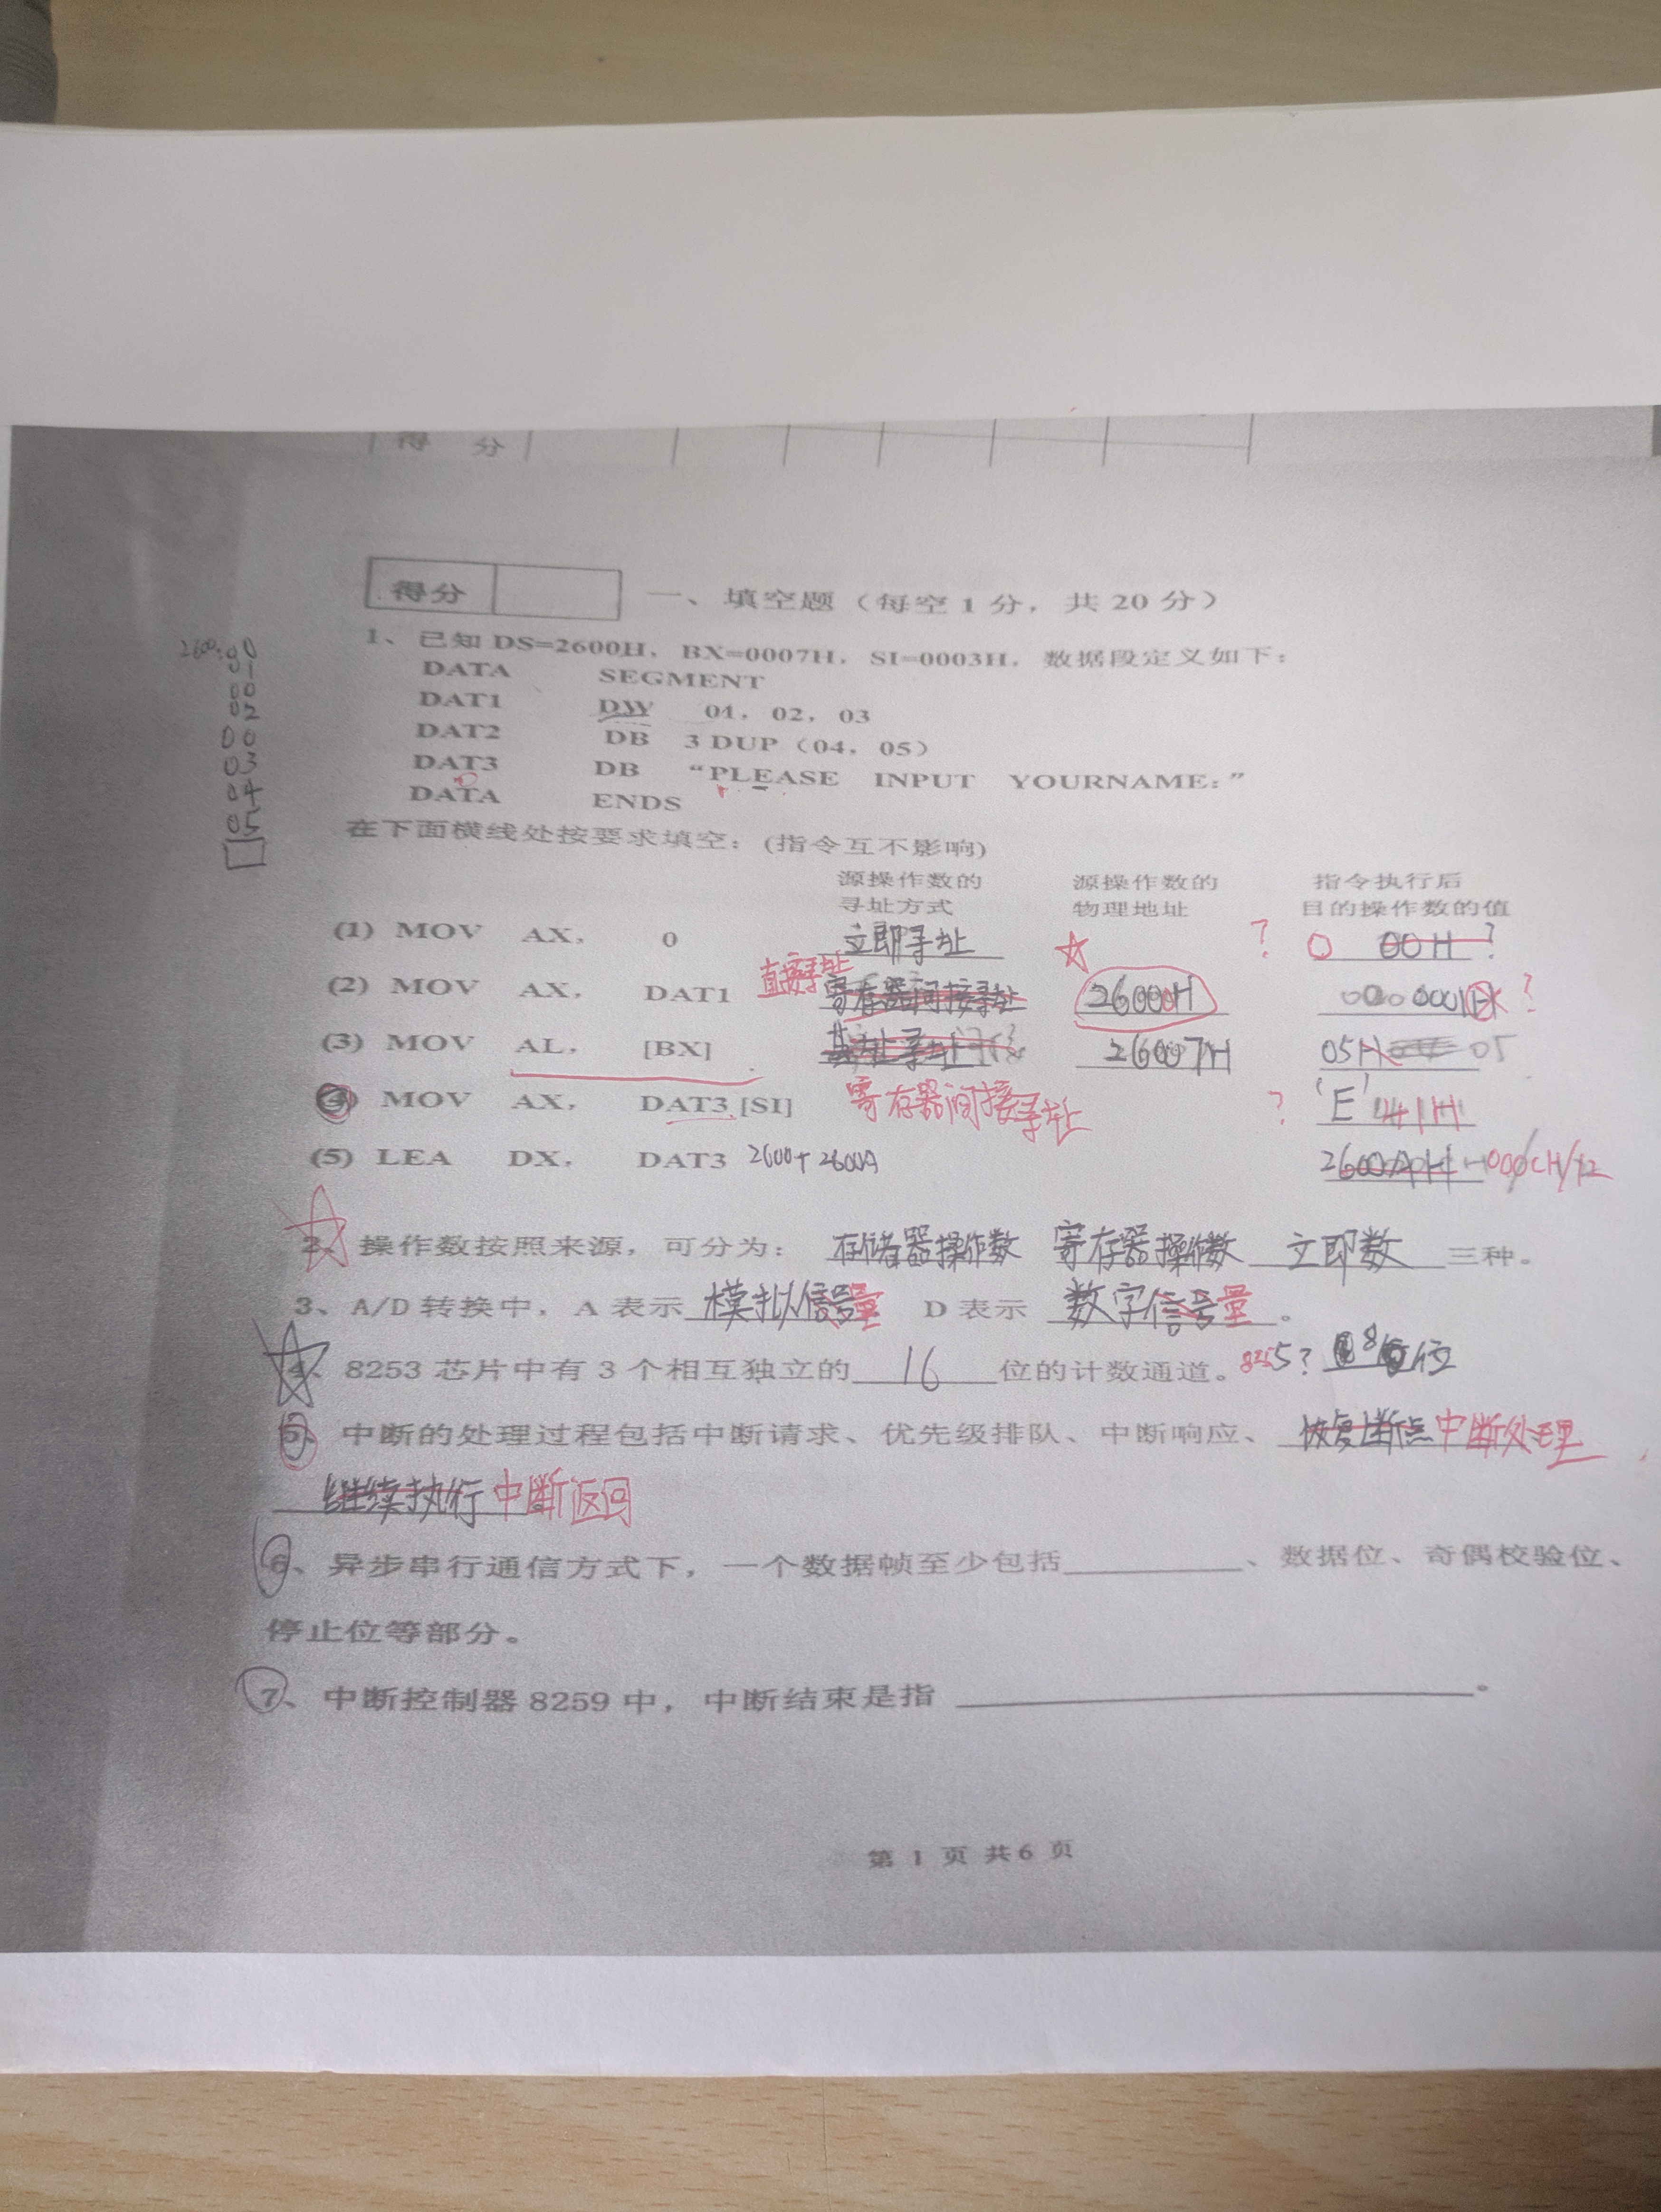 得 分
得分
一、填空题（每空 1 分，共 20 分）
1、已知 DS=2600H，BX=0007H，SI=0003H，数据段定义如下：
DATA SEGMENT
DAT1 DW 01，02，03
DAT2 DB 3 DUP（04，05）
DAT3 DB “PLEASE INPUT YOURNAME：”
DATA ENDS
2600:00
01
00
02
00
03
04
05
在下面横线处按要求填空：(指令互不影响)
源操作数的 源操作数的 指令执行后
寻址方式 物理地址 目的操作数的值
(1) MOV AX， 0 立即寻址 ? 0 00H ?
(2) MOV AX， DAT1 直接寻址 寄存器间接寻址 26000H 0001H ?
(3) MOV AL， [BX] 基址寻址 26007H 05H 05
(4) MOV AX， DAT3 [SI] 寄存器间接寻址 ? 'E' 41H
(5) LEA DX， DAT3 2600+2600A 2600AH 000CH/12
2、操作数按照来源，可分为： 存储器操作数 寄存器操作数 立即数 三种。
3、A/D 转换中，A 表示 模拟信号量 D 表示 数字信号量 。
4、8253 芯片中有 3 个相互独立的 16 位的计数通道。 8255? 8位
5、中断的处理过程包括中断请求、优先级排队、中断响应、 恢复断点 中断处理
继续执行 中断返回
6、异步串行通信方式下，一个数据帧至少包括 、数据位、奇偶校验位、
停止位等部分。
7、中断控制器 8259 中，中断结束是指 。
第 1 页 共 6 页